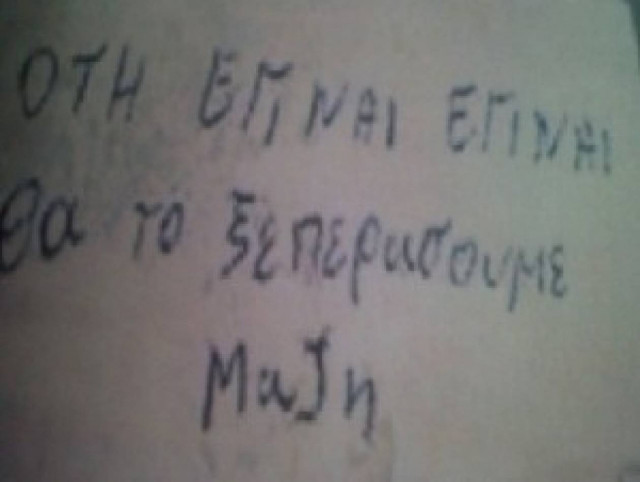 ΟΤΗ ΕΓΙΝΑΙ ΕΓΙΝΑΙ
θα το ξεπερασουμε
Μαζη